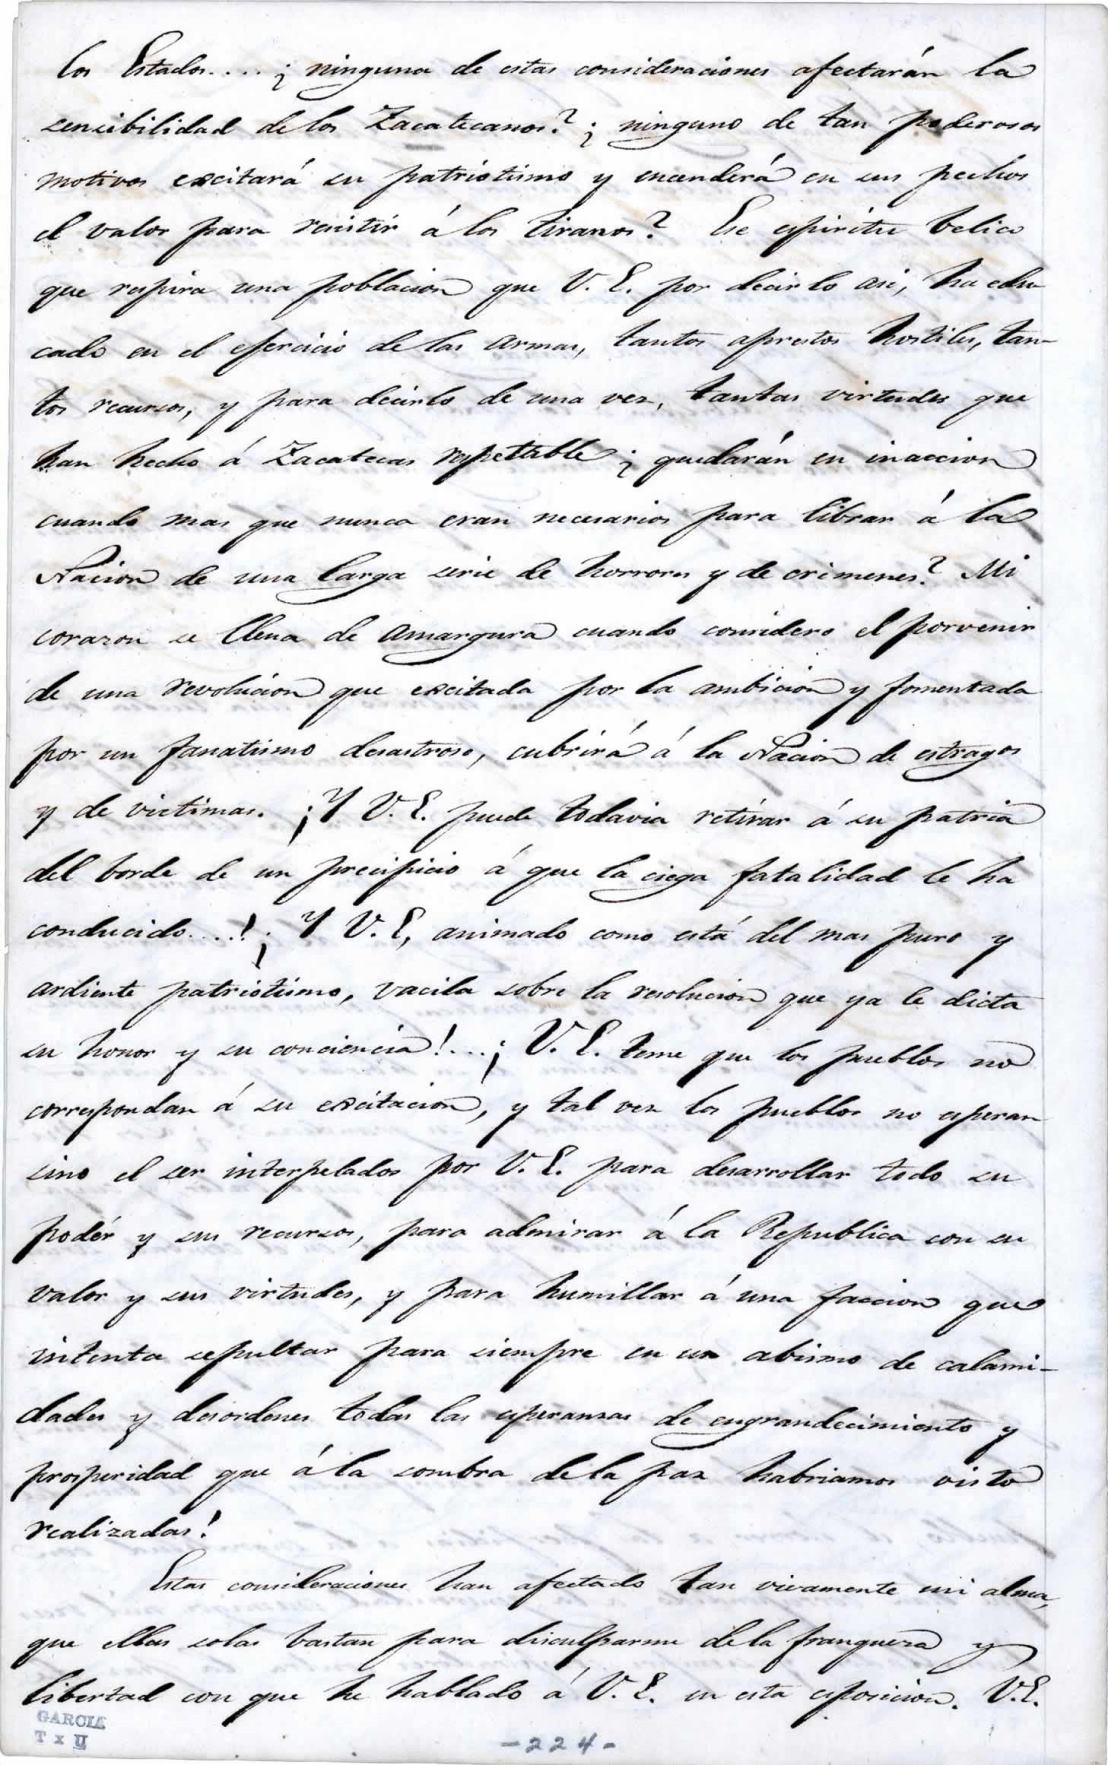 los Estados.... ¡ ninguna de estas consideraciones afectarán la
sensibilidad de los Zacatecanos? ¡ ninguno de tan poderosos
motivos excitará su patriotismo y encenderá en sus pechos
el valor para resistir á los tiranos? Ese espiritu belico
que respira una poblacion que V. E. por decirlo asi, ha edu
cado en el ejercicio de las armas, tantos aprestos hostiles, tan-
tos recursos, y para decirlo de una vez, tantas virtudes que
han hecho á Zacatecas respettable ¡ quedarán en inaccion
cuando mas que nunca eran necesarios para librar á la
Nacion de una larga serie de horrores y de crimenes? Mi
corazon se llena de amargura cuando considero el porvenir
de una revolucion que excitada por la ambicion y fomentada
por un fanatismo desastroso, cubrirá á la Nacion de estragos
y de victimas. ¡Y V. E. puede todavia retirar á su patria
del borde de un precipicio á que la ciega fatalidad le ha
conducido....! ¡ Y V. E, animado como está del mas puro y
ardiente patriotismo, vacila sobre la resolucion que ya le dicta
su honor y su conciencia!...¡ V. E. teme que los pueblos no
correspondan á su excitacion, y tal vez los pueblos no esperan
sino el ser interpelados por V. E. para desarrollar todo su
podér y sus recursos, para admirar á la Republica con su
valor y sus virtudes, y para humillar á una faccion que
intenta sepultar para siempre en un abismo de calami-
dades y desordenes todas las esperanzas de engrandecimiento y
prosperidad que á la sombra de la paz habriamos visto
realizadas!
Estas consideraciones han afectado tan vivamente mi alma,
que ellas solas bastan para disculparme de la franqueza y
libertad con que he hablado á V. E. en esta esposicion. V.E.
GARCIA
T x II
-224-